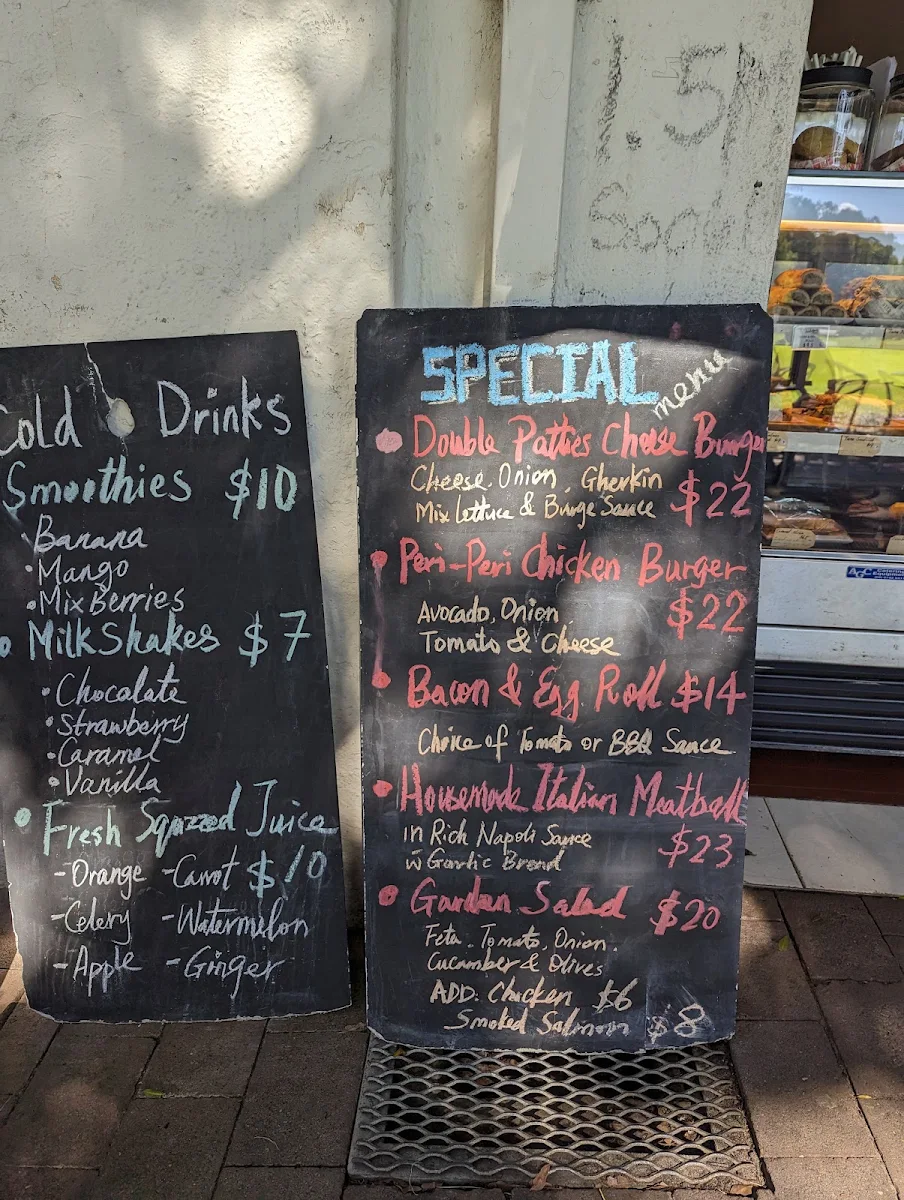 1.5M
Cold Drinks
Smoothies $10
Banana
• Mango
• Mix Berries
• MilkShakes $7
• Chocalate
• Strawberry
• Caramel
• Vanilla
• Fresh Sqzzed Juice
- Orange - Carrot $10
- Celery - Watermelon
- Apple - Ginger
SPECIAL menu
• Double Patties Cheese Burger
Cheese, Onion, Gherkin
Mix lettuce & Burge Sauce $22
• Peri-Peri Chicken Burger
Avocado, Onion $22
Tomato & Cheese
• Bacon & Egg Roll $14
Choice of Tomato or BBQ Sauce
• Housemade Italian Meatball
in Rich Napoli Sauce $23
w Garlic Bread
• Garden Salad $20
Feta, Tomato, Onion,
Cucamber & Olives
ADD: Chicken $6
Smoked Salmon $8